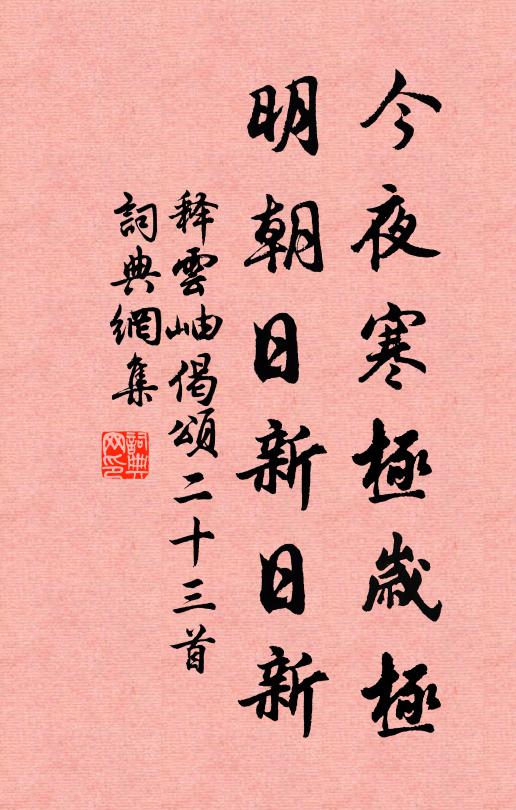 今夜寒極歲極
明朝日新日新
释雲岫偈頌二十三首
詞典網集
詞典网印